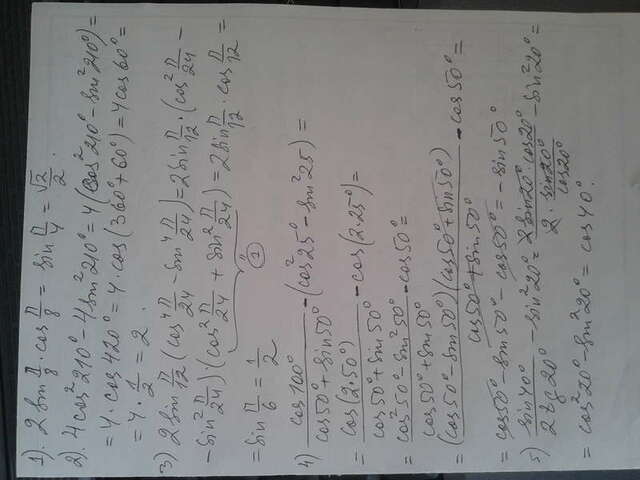 1). 2 sin π/8 · cos π/8 = sin π/4 = √2/2.
2). 4cos² 210° - 4sin² 210° = 4(cos² 210° - sin² 210°) =
= 4 · cos 420° = 4 · cos(360° + 60°) = 4 cos 60° =
= 4 · 1/2 = 2.
3) 2 sin π/12 (cos⁴ π/24 - sin⁴ π/24) = 2 sin π/12 · (cos² π/24 -
- sin² π/24) · (cos² π/24 + sin² π/24) = 2 sin π/12 · cos π/12 =
1
= sin π/6 = 1/2
4) cos 100° / (cos 50° + sin 50°) - (cos² 25° - sin² 25) =
= cos(2·50°) / (cos 50° + sin 50°) - cos(2·25°) =
= (cos² 50° - sin² 50°) / (cos 50° + sin 50°) - cos 50° =
= (cos 50° - sin 50°)(cos 50° + sin 50°) / (cos 50° + sin 50°) - cos 50° =
= cos 50° - sin 50° - cos 50° = - sin 50°
5) sin 40° / 2 tg 20° - sin² 20° = 2 sin 20° · cos 20° / (2 · sin 20° / cos 20°) - sin² 20° =
= cos² 20° - sin² 20° = cos 40°.